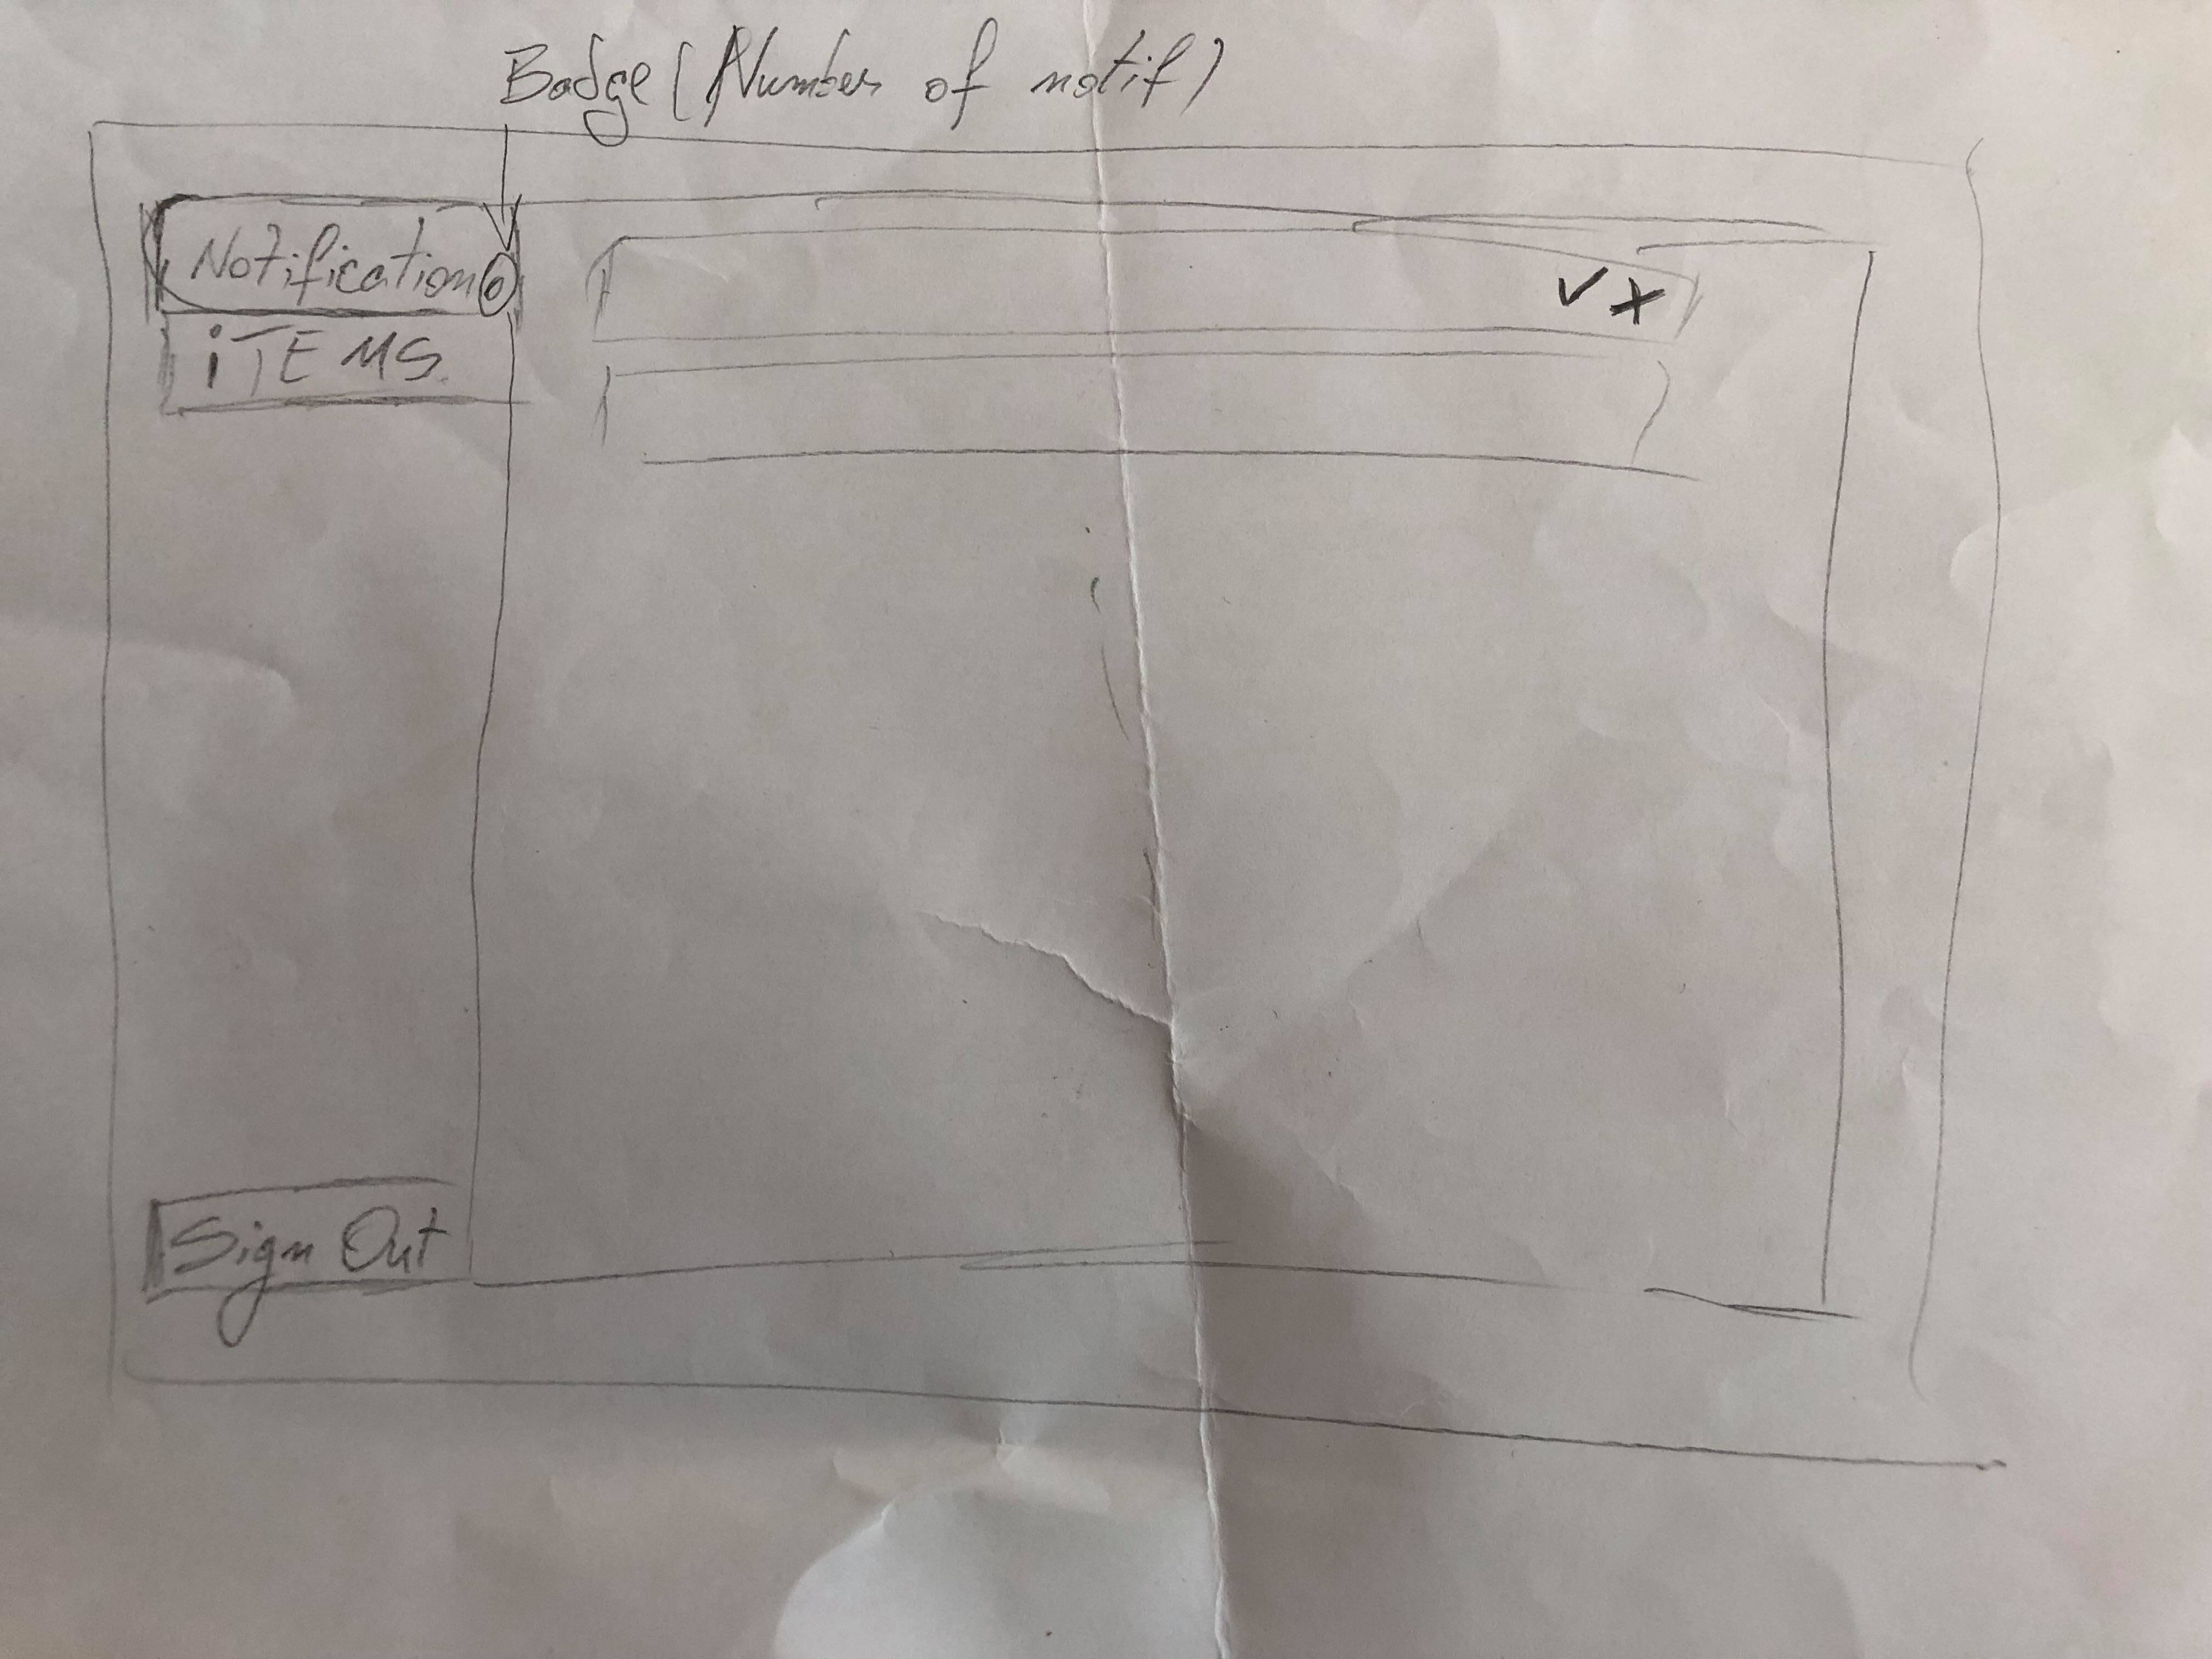 Badge (Number of notif)
Notification 0
iTEMS
✓ x
Sign Out